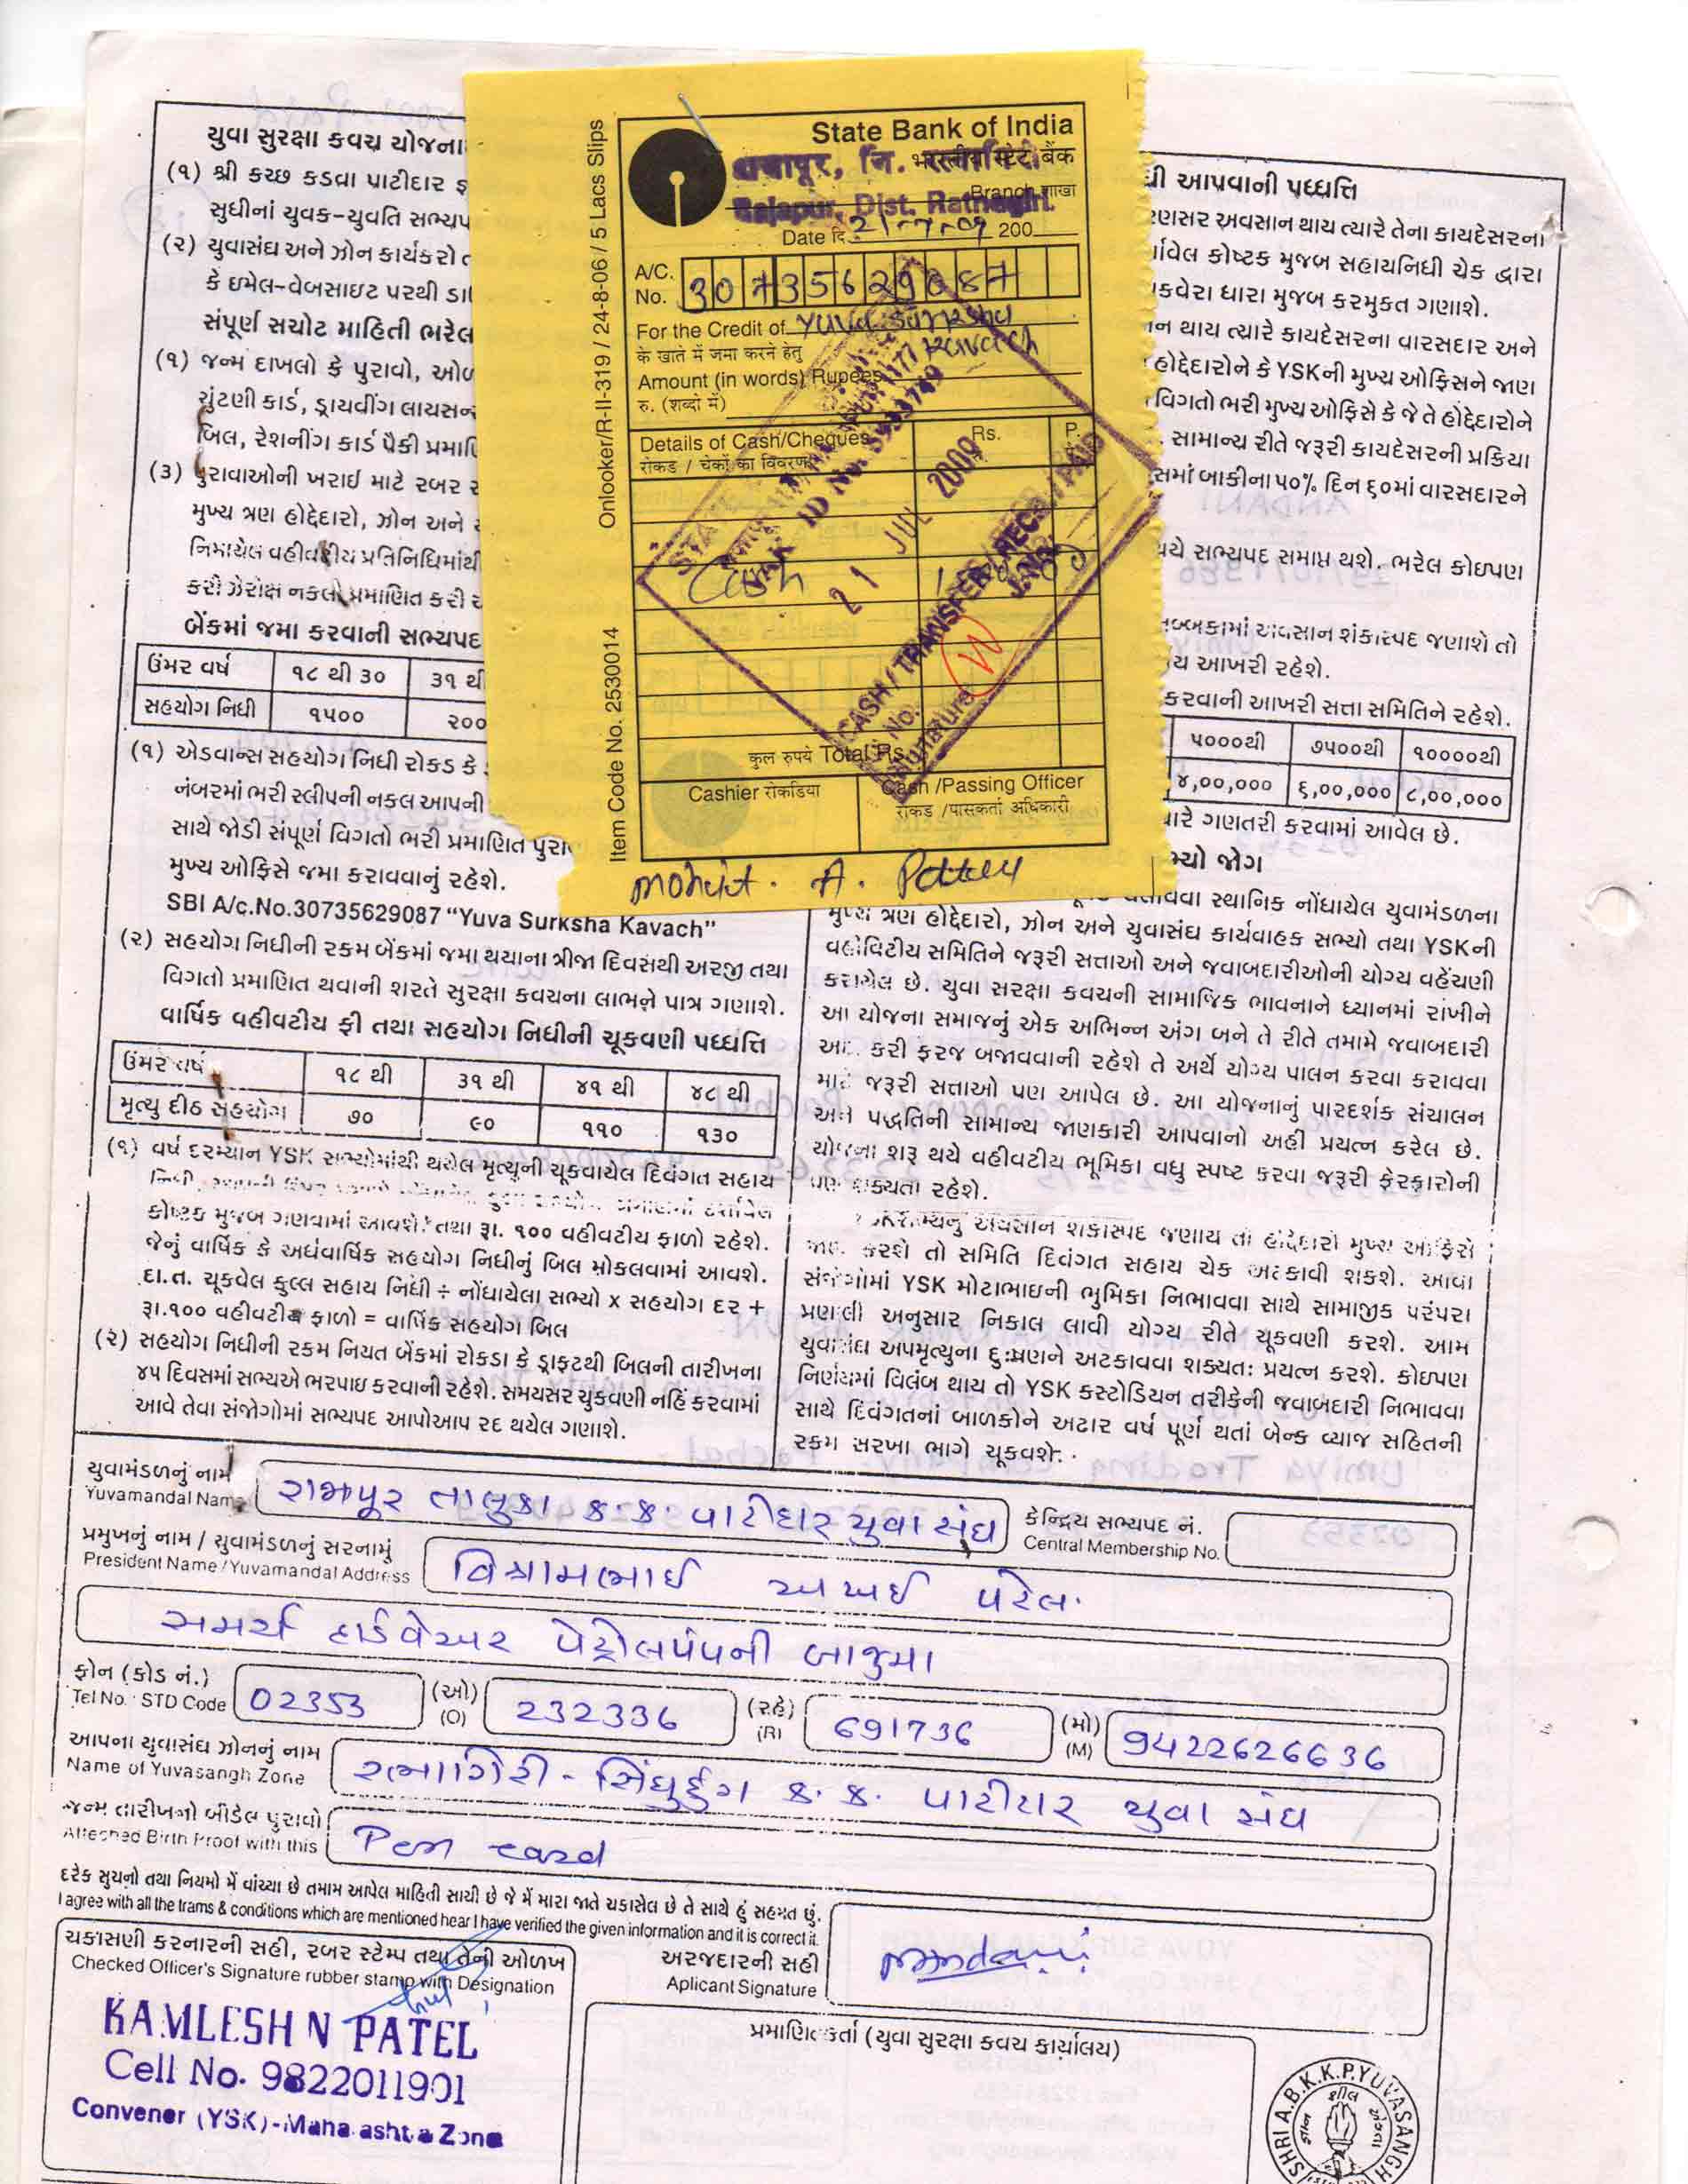 યુવા સુરક્ષા કવચ યોજના
(૧) શ્રી કચ્છ કડવા પાટીદાર
સુધીનાં યુવક-યુવતિ સભ્યપ
(૨) યુવાસંઘ અને ઝોન કાર્યકરો
કે ઇમેલ-વેબસાઇટ પરથી ડા
સંપૂર્ણ સચોટ માહિતી ભરેલ
(૧) જન્મ દાખલો કે પુરાવો, ઓળ
ચુંટણી કાર્ડ, ડ્રાયવીંગ લાયસન્
બિલ, રેશનીંગ કાર્ડ પૈકી પ્રમાણિ
(૩) પુરાવાઓની ખરાઇ માટે રબર
મુખ્ય ત્રણ હોદ્દેદારો, ઝોન અને
નિમાયેલ વહીવટીય પ્રતિનિધિમાંથી
કરી ઝેરોક્ષ નકલો પ્રમાણિત કરી
બેંકમાં જમા કરવાની સભ્યપદ
ઉંમર વર્ષ ૧૮ થી ૩૦ ૩૧ થી
સહયોગ નિધી ૧૫૦૦ ૨૦૦
(૧) એડવાન્સ સહયોગ નિધી રોકડ કે
નંબરમાં ભરી સ્લીપની નકલ આપની
સાથે જોડી સંપૂર્ણ વિગતો ભરી પ્રમાણિત પુરા
મુખ્ય ઓફિસે જમા કરાવવાનું રહેશે.
SBI A/c.No.30735629087 “Yuva Surksha Kavach”
(૨) સહયોગ નિધીની રકમ બેંકમાં જમા થયાના ત્રીજા દિવસથી અરજી તથા
વિગતો પ્રમાણિત થવાની શરતે સુરક્ષા કવચના લાભને પાત્ર ગણાશે.
વાર્ષિક વહીવટીય ફી તથા સહયોગ નિધીની ચૂકવણી પધ્ધતિ
ઉંમર વર્ષ ૧૮ થી ૩૧ થી ૪૧ થી ૪૮ થી
મૃત્યુ દીઠ સહયોગ ૭૦ ૯૦ ૧૧૦ ૧૩૦
(૧) વર્ષ દરમ્યાન YSK સભ્યોમાંથી થયેલ મૃત્યુની ચૂકવાયેલ દિવંગત સહાય
કોષ્ટક મુજબ ગણવામાં આવશે. તથા રૂા. ૧૦૦ વહીવટીય ફાળો રહેશે.
જેનું વાર્ષિક કે અર્ધવાર્ષિક સહયોગ નિધીનું બિલ મોકલવામાં આવશે.
દા.ત. ચૂકવેલ કુલ્લ સહાય નિધી ÷ નોંધાયેલા સભ્યો x સહયોગ દર +
રૂા.૧૦૦ વહીવટીય ફાળો = વાર્ષિક સહયોગ બિલ
(૨) સહયોગ નિધીની રકમ નિયત બેંકમાં રોકડા કે ડ્રાફ્ટથી બિલની તારીખના
૪૫ દિવસમાં સભ્યએ ભરપાઇ કરવાની રહેશે. સમયસર ચુકવણી નહિં કરવામાં
આવે તેવા સંજોગોમાં સભ્યપદ આપોઆપ રદ થયેલ ગણાશે.
Onlooker/R-II-319 / 24-8-06 / 5 Lacs Slips
Item Code No. 2530014
State Bank of India
भारतीय स्टेट बैंक
राजापूर, जि. रत्नागिरी
Branch शाखा
Rajapur, Dist. Ratnagiri.
Date दि. 21-7-09 200
A/C. No. 30735629087
For the Credit of Yuva Surksha
के खाते में जमा करने हेतु Kavach
Amount (in words) Rupees
रु. (शब्दों में)
Details of Cash/Cheques Rs. P.
रोकड / चेकों का विवरण
Cash
21 JUL 2009
CASH / TRANSFER / RECD. / PAID
कुल रुपये Total Rs.
Cashier रोकडिया
Cash /Passing Officer
रोकड /पासकर्ता अधिकारी
Mohit. A. Patel
ધી આપવાની પધ્ધતિ
રણસર અવસાન થાય ત્યારે તેના કાયદેસરના
ર્વિલ કોષ્ટક મુજબ સહાયનિધી ચેક દ્વારા
કવેરા ધારા મુજબ કરમુકત ગણાશે.
ાન થાય ત્યારે કાયદેસરના વારસદાર અને
હોદ્દેદારોને કે YSKની મુખ્ય ઓફિસને જાણ
વિગતો ભરી મુખ્ય ઓફિસે કે જે તે હોદ્દેદારોને
. સામાન્ય રીતે જરૂરી કાયદેસરની પ્રક્રિયા
સમાં બાકીના ૫૦% દિન ૬૦માં વારસદારને
થયે સભ્યપદ સમાપ્ત થશે. ભરેલ કોઇપણ
તબ્બકામાં અવસાન શંકાસ્પદ જણાશે તો
ય આખરી રહેશે.
કરવાની આખરી સત્તા સમિતિને રહેશે.
૫૦૦૦થી ૭૫૦૦થી ૧૦૦૦૦થી
૪,૦૦,૦૦૦ ૬,૦૦,૦૦૦ ૮,૦૦,૦૦૦
ારે ગણતરી કરવામાં આવેલ છે.
ભ્યો જોગ
સ્થાનિક નોંધાયેલ યુવામંડળના
મુખ્ય ત્રણ હોદ્દેદારો, ઝોન અને યુવાસંઘ કાર્યવાહક સભ્યો તથા YSKની
વહીવિટીય સમિતિને જરૂરી સત્તાઓ અને જવાબદારીઓની યોગ્ય વહેંચણી
કરાયેલ છે. યુવા સરક્ષા કવચની સામાજિક ભાવનાને ધ્યાનમાં રાંખીને
આ યોજના સમાજનું એક અભિન્ન અંગ બને તે રીતે તમામે જવાબદારી
અદા કરી ફરજ બજાવવાની રહેશે તે અર્થે યોગ્ય પાલન કરવા કરાવવા
માટે જરૂરી સત્તાઓ પણ આપેલ છે. આ યોજનાનું પારદર્શક સંચાલન
અને પદ્ધતિની સામાન્ય જાણકારી આપવાનો અહી પ્રયત્ન કરેલ છે.
યોજના શરૂ થયે વહીવટીય ભૂમિકા વધુ સ્પષ્ટ કરવા જરૂરી ફેરફારોની
પણ શક્યતા રહેશે.
અવસાન શંકાસ્પદ જણાય તો હોદ્દેદારો મુખ્ય ઓફિસે
જાણ કરશે તો સમિતિ દિવંગત સહાય ચેક અટકાવી શકશે. આવા
સંજોગોમાં YSK મોટાભાઇની ભુમિકા નિભાવવા સાથે સામાજીક પરંપરા
પ્રણાલી અનુસાર નિકાલ લાવી યોગ્ય રીતે ચૂકવણી કરશે. આમ
યુવાસંઘ અપમૃત્યુના દુઃષણને અટકાવવા શક્યતઃ પ્રયત્ન કરશે. કોઇપણ
નિર્ણયમાં વિલંબ થાય તો YSK કસ્ટોડિયન તરીકેની જવાબદારી નિભાવવા
સાથે દિવંગતનાં બાળકોને અઢાર વર્ષ પૂર્ણ થતાં બેન્ક વ્યાજ સહિતની
રકમ સરખા ભાગે ચૂકવશે.
યુવામંડળનું નામ રાજાપૂર તાલુકા ક.ક. પાટીદાર યુવા સંઘ કેન્દ્રિય સભ્યપદ નં.
Yuvamandal Name Central Membership No.
પ્રમુખનું નામ / યુવામંડળનું સરનામું વિશ્રામભાઈ અખઈ પટેલ.
President Name / Yuvamandal Address
સમર્થ હાર્ડવેઅર પેટ્રોલપંપની બાજુમા
ફોન (કોડ નં.) (ઓ) (રહે) (મો)
Tel No. STD Code 02353 (O) 232336 (R) 691736 (M) 9422626636
આપના યુવાસંઘ ઝોનનું નામ રત્નાગિરી - સિંધુદુર્ગ ક.ક. પાટીદાર યુવા સંઘ
Name of Yuvasangh Zone
જન્મ તારીખનો બીડેલ પુરાવો Pan card
Atteched Birth Proof with this
દરેક સુચનો તથા નિયમો મેં વાંચ્યા છે તમામ આપેલ માહિતી સાચી છે જે મેં મારા જાતે ચકાસેલ છે તે સાથે હું સહમત છું.
I agree with all the trams & conditions which are mentioned hear I have verified the given information and it is correct it.
ચકાસણી કરનારની સહી, રબર સ્ટેમ્પ તથા તેની ઓળખ
Checked Officer's Signature rubber stamp with Designation
KAMLESH N PATEL
Cell No. 9822011901
Convener (YSK)-Maharashtra Zone
અરજદારની સહી
Aplicant Signature
પ્રમાણિતકર્તા (યુવા સુરક્ષા કવચ કાર્યાલય)
SHRI A.B.K.K.P.YUVASANGH